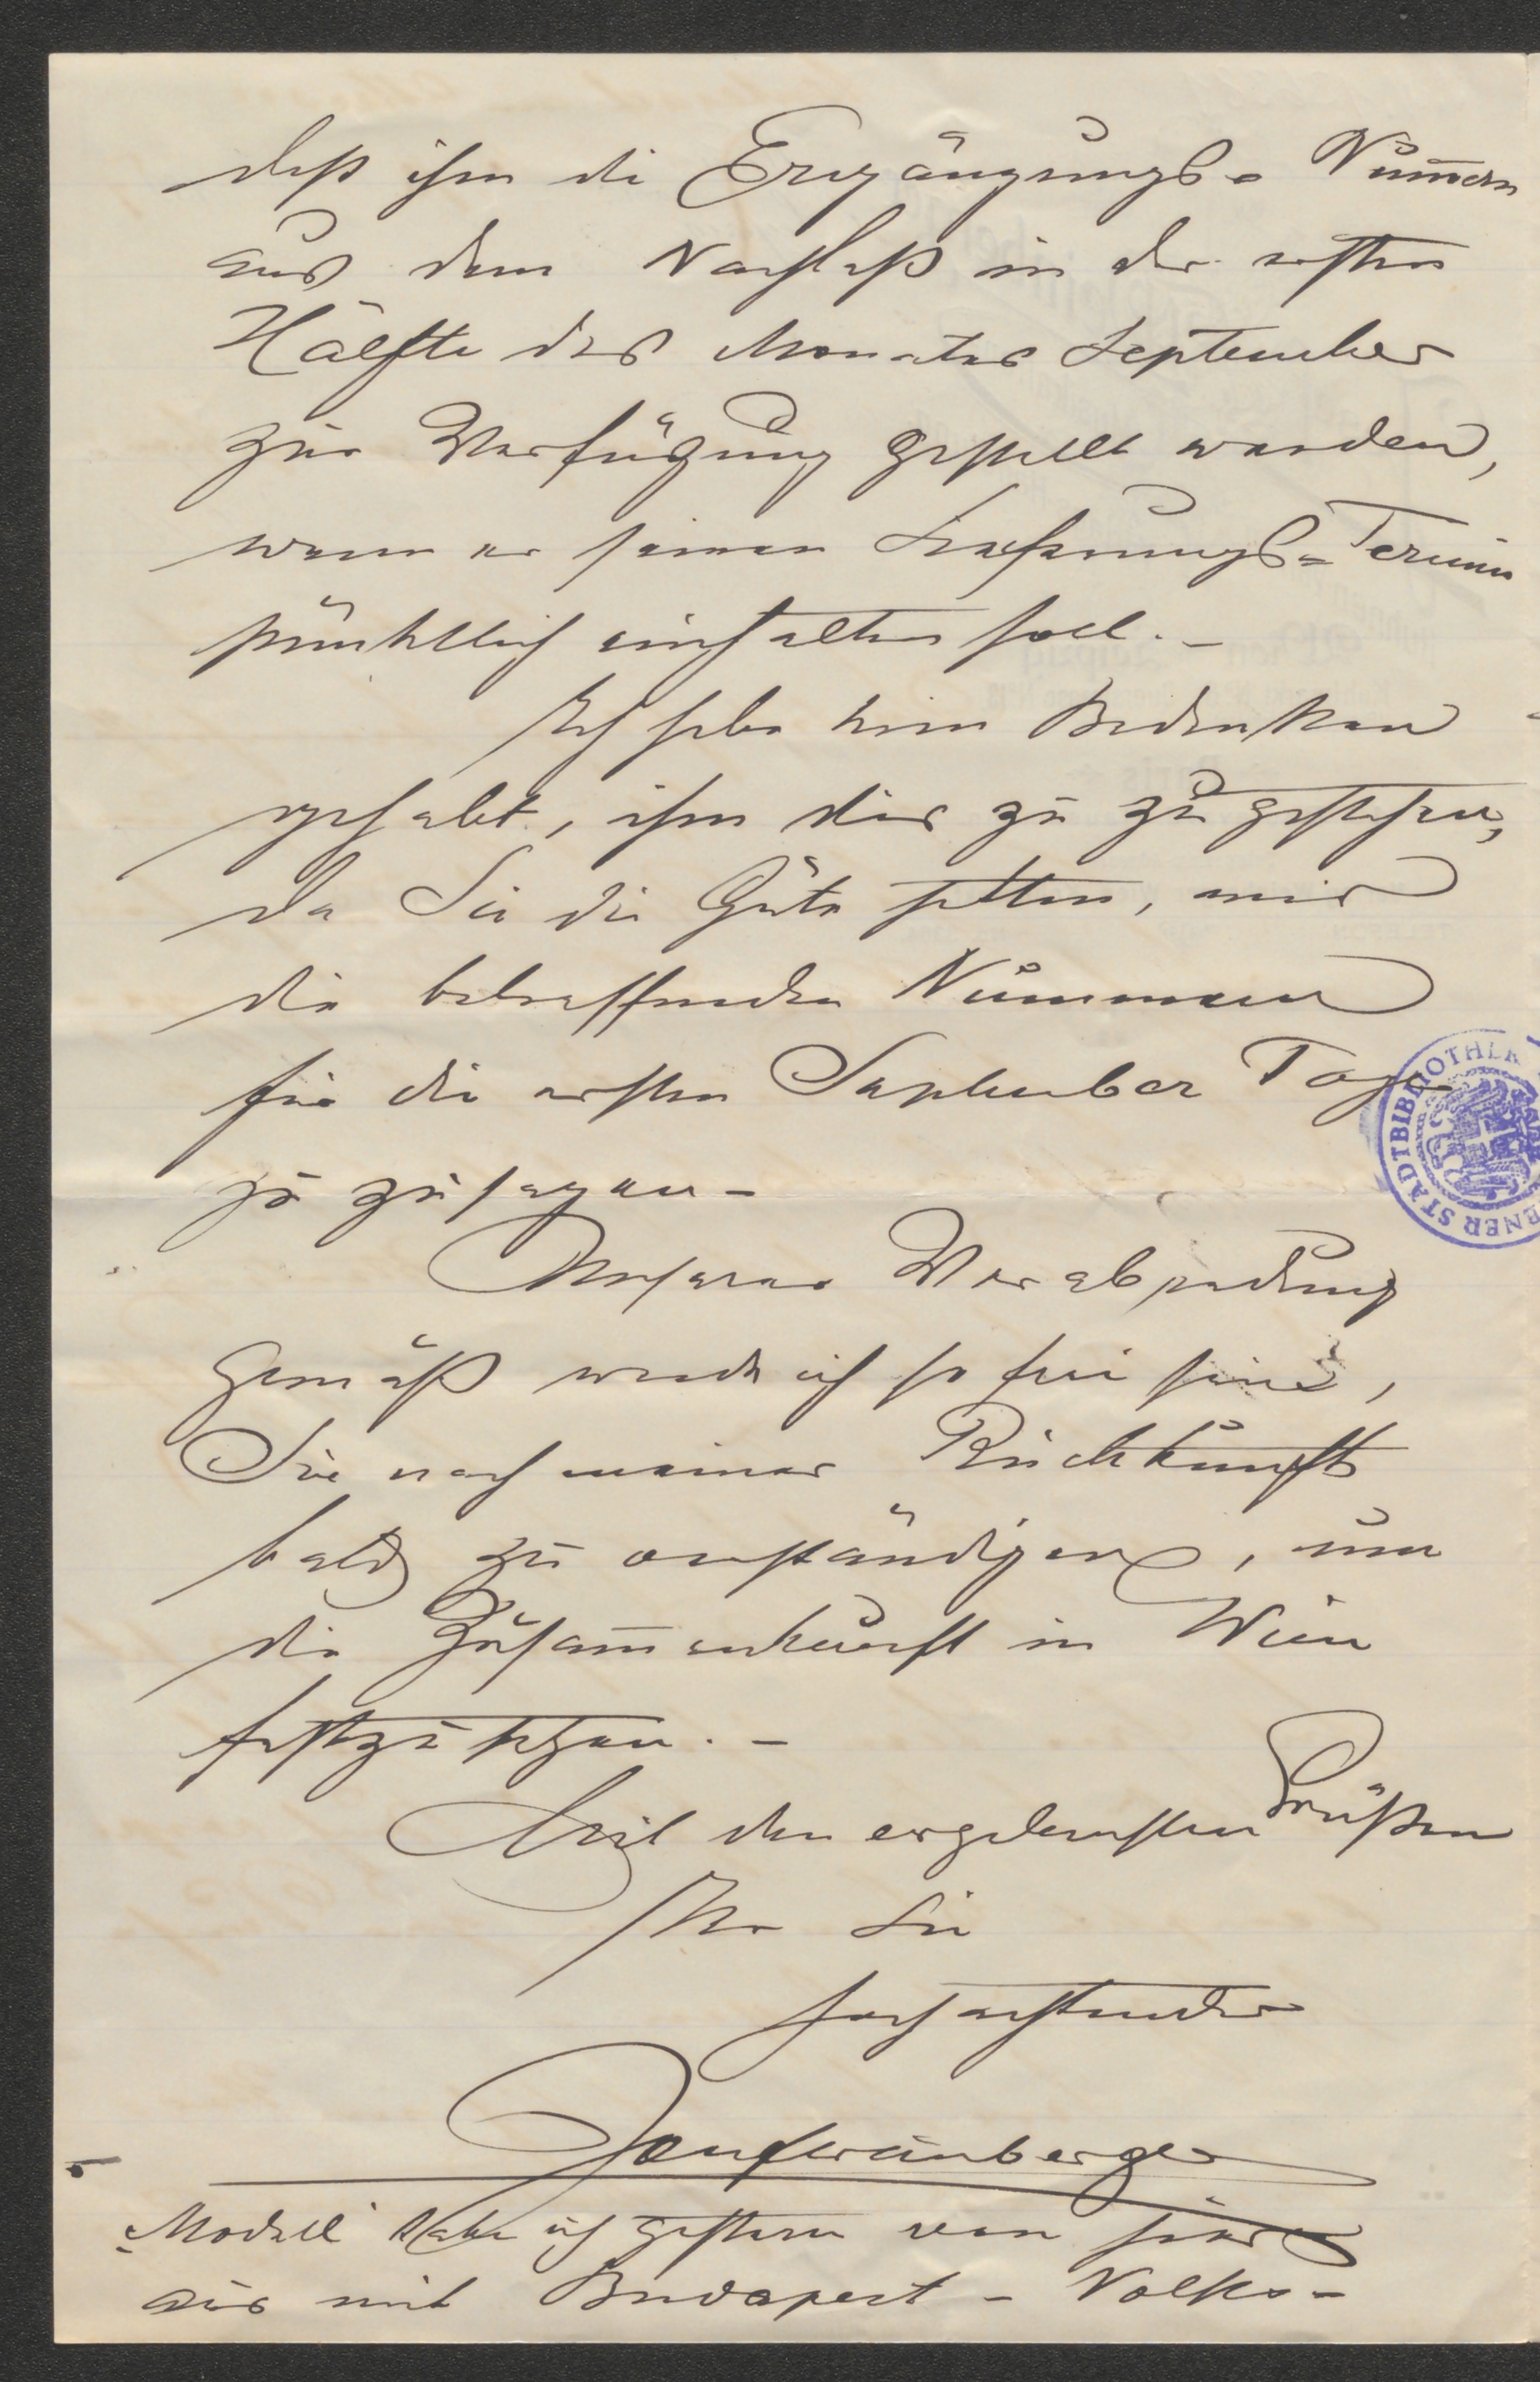 daß ihm die Ergänzungs-Num̄ern
aus dem Nachlaß in der ersten
Hälfte des Monates September
zur Verfügung gestellt werden,
wenn er seinen Lieferungs-Termin
pünktlich einhalten soll. –
Ich habe kein Bedenken
gehabt, ihm dies zu zugestehen,
da Sie die Güte hatten, mir
die betreffenden Nummern
für die ersten September Tage
zu zusagen –
Unserer Verabredung
gemäß werde ich so frei sein,
Sie nach meiner Rückkunft
bald zu verständigen, um
die Zusam̄enkunft in Wien
festzusetzen. –
Mit den ergebensten Grüßen
Ihr Sie
hochachtender
Josef Weinberger
"Modell" habe ich gestern von hier
aus mit Budapest – Volks-
WIENER STADTBIBLIOTHEK